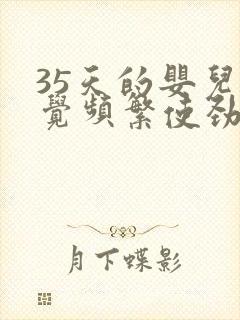 35天的嬰兒
覺頻繁使勁
月下蝶影